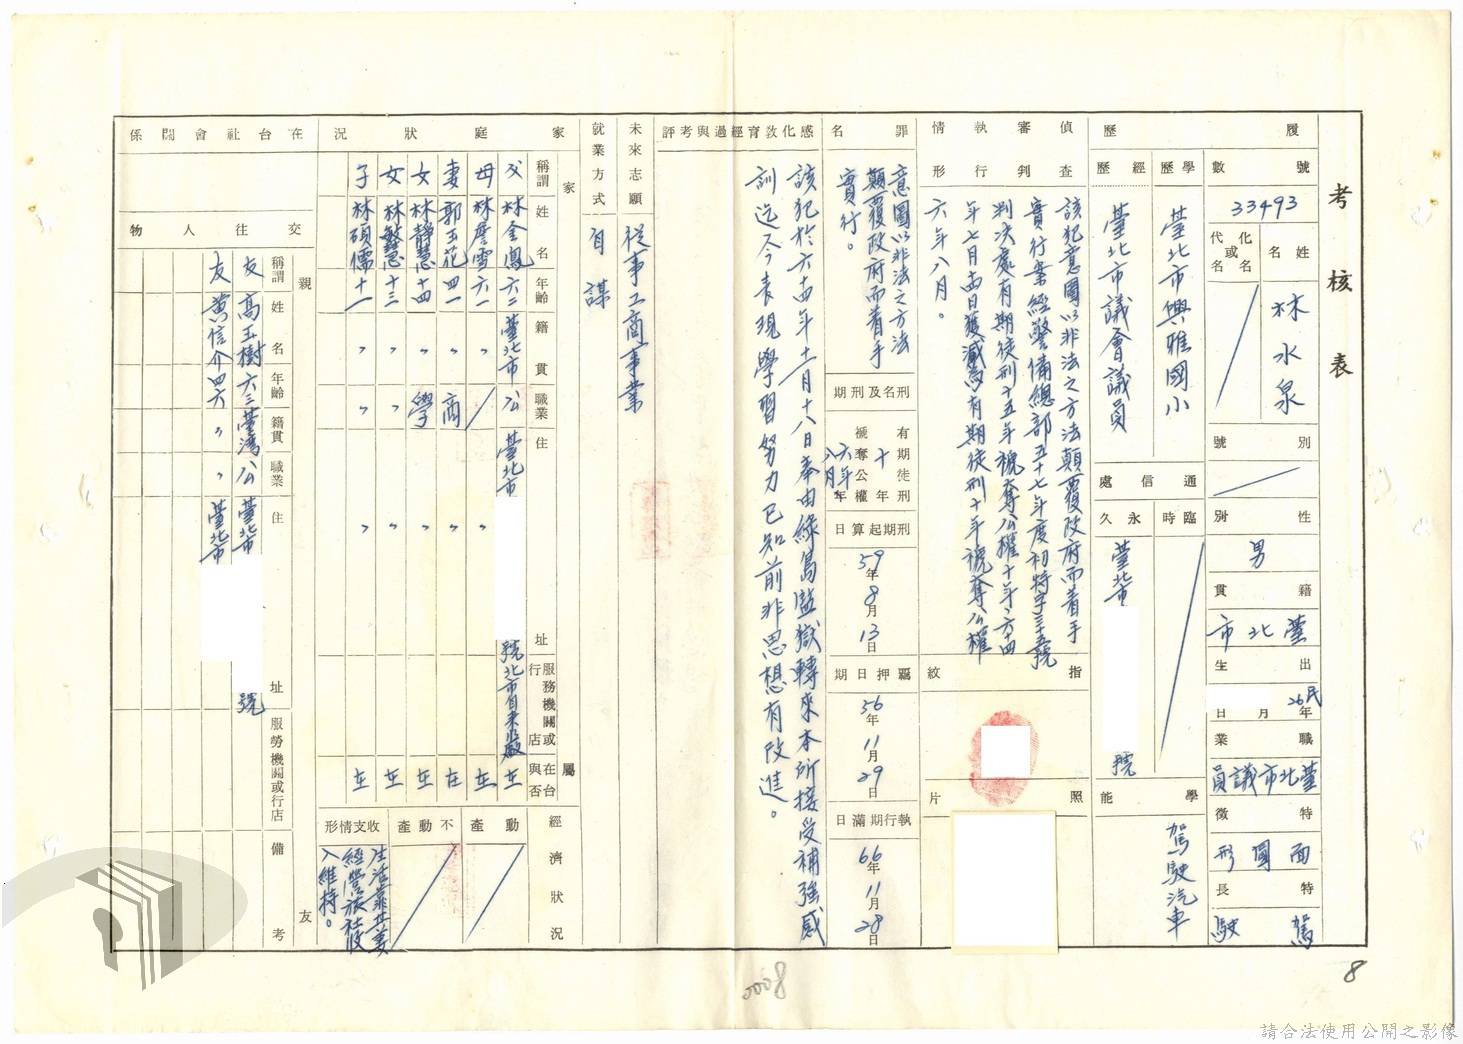 考核表
履歷
號數
33493
姓名
林水泉
化名或代名
別號
性別
男
籍貫
臺北市
出生
民26年 月 日
職業
臺北市議員
特徵
面圓形
特長
駕駛
學歷
臺北市興雅國小
經歷
臺北市議會議員
通信處
臨時
永久
臺北市
號
學能
駕駛汽車
偵查審判執行情形
該犯意圖以非法之方法顛覆政府而着手
實行案經警備總部五十七年度初特字三五號
判決處有期徒刑十五年褫奪公權十年六十四
年七月十四日獲減為有期徒刑十年褫奪公權
六年八月。
指紋
照片
罪名
意圖以非法之方法
顛覆政府而着手
實行。
刑名及刑期
有期徒刑十年
褫奪公權六年八月
刑期起算日
59年8月13日
羈押日期
56年11月29日
執行期滿日
66年11月28日
感化教育經過與考評
該犯於六十四年十二月十八日奉由綠島監獄轉來本所接受補強感
訓迄今表現學習努力已知前非思想有改進。
未來志願
從事工商事業
就業方式
自謀
家庭狀況
家屬
稱謂 姓名 年齡 籍貫 職業 住址 服務機關或行店 在台與否
父 林金鳳 六二 臺北市 公 臺北市 號 北市自來水廠 在
母 林詹雪 六一 〃 〃 在
妻 郭玉花 四一 〃 商 〃 在
女 林靜慧 十四 〃 學 〃 在
女 林敏慧 十三 〃 〃 〃 在
子 林碩儒 十一 〃 〃 〃 在
經濟狀況
動產
不動產
收支情形
生活靠其妻
經營旅社收
入維持。
在台社會關係
親友
交往人物
稱謂 姓名 年齡 籍貫 職業 住址 服勞機關或行店 備考
友 高玉樹 六三 臺灣 公 臺北市 號
友 黃信介 四六 〃 〃 臺北市
8
0008
請合法使用公開之影像